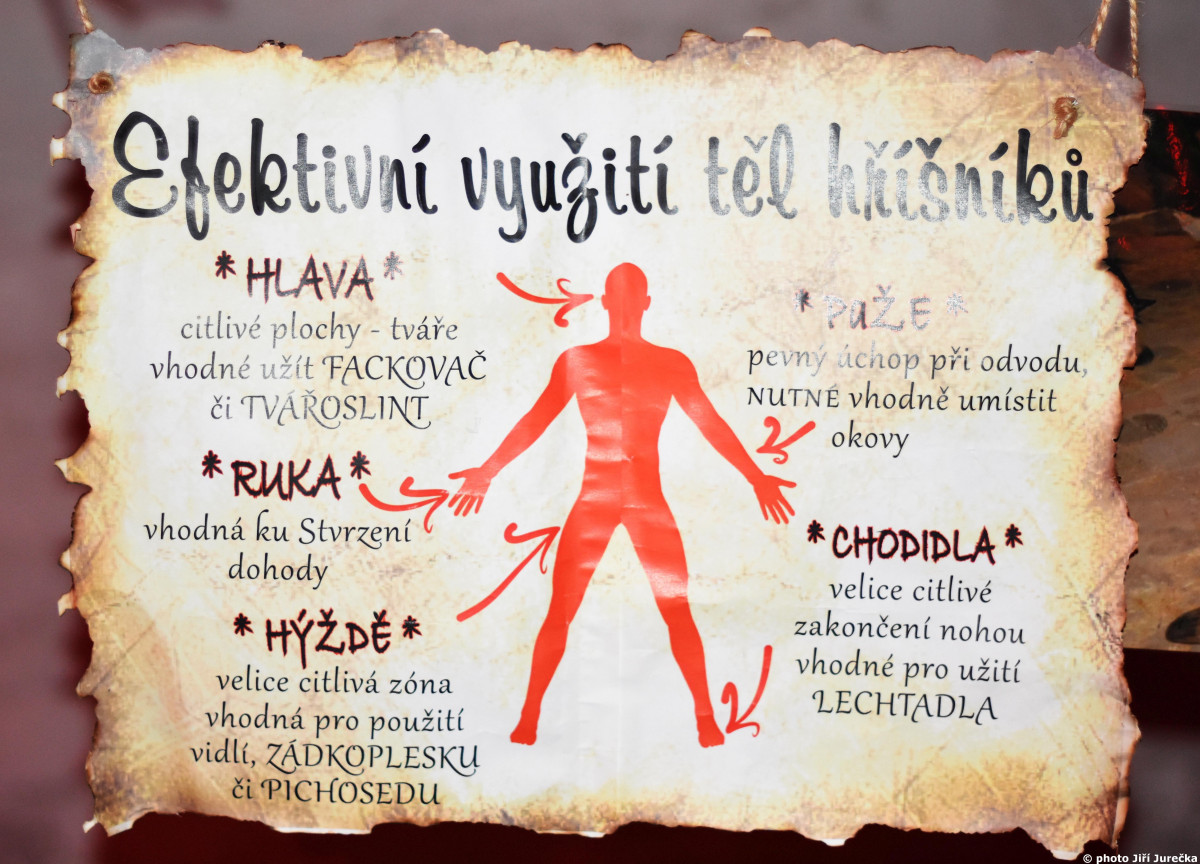 Efektivní využití těl hříšníků
* HLAVA *
citlivé plochy - tváře
vhodné užít FACKOVAČ
či TVÁŘOSLINT
* RUKA *
vhodná ku Stvrzení
dohody
* HÝŽDĚ *
velice citlivá zóna
vhodná pro použití
vidlí, ZÁDKOPLESKU
či PICHOSEDU
* PAŽE *
pevný úchop při odvodu,
NUTNÉ vhodně umístit
okovy
* CHODIDLA *
velice citlivé
zakončení nohou
vhodné pro užití
LECHTADLA
© photo Jiří Jurečka